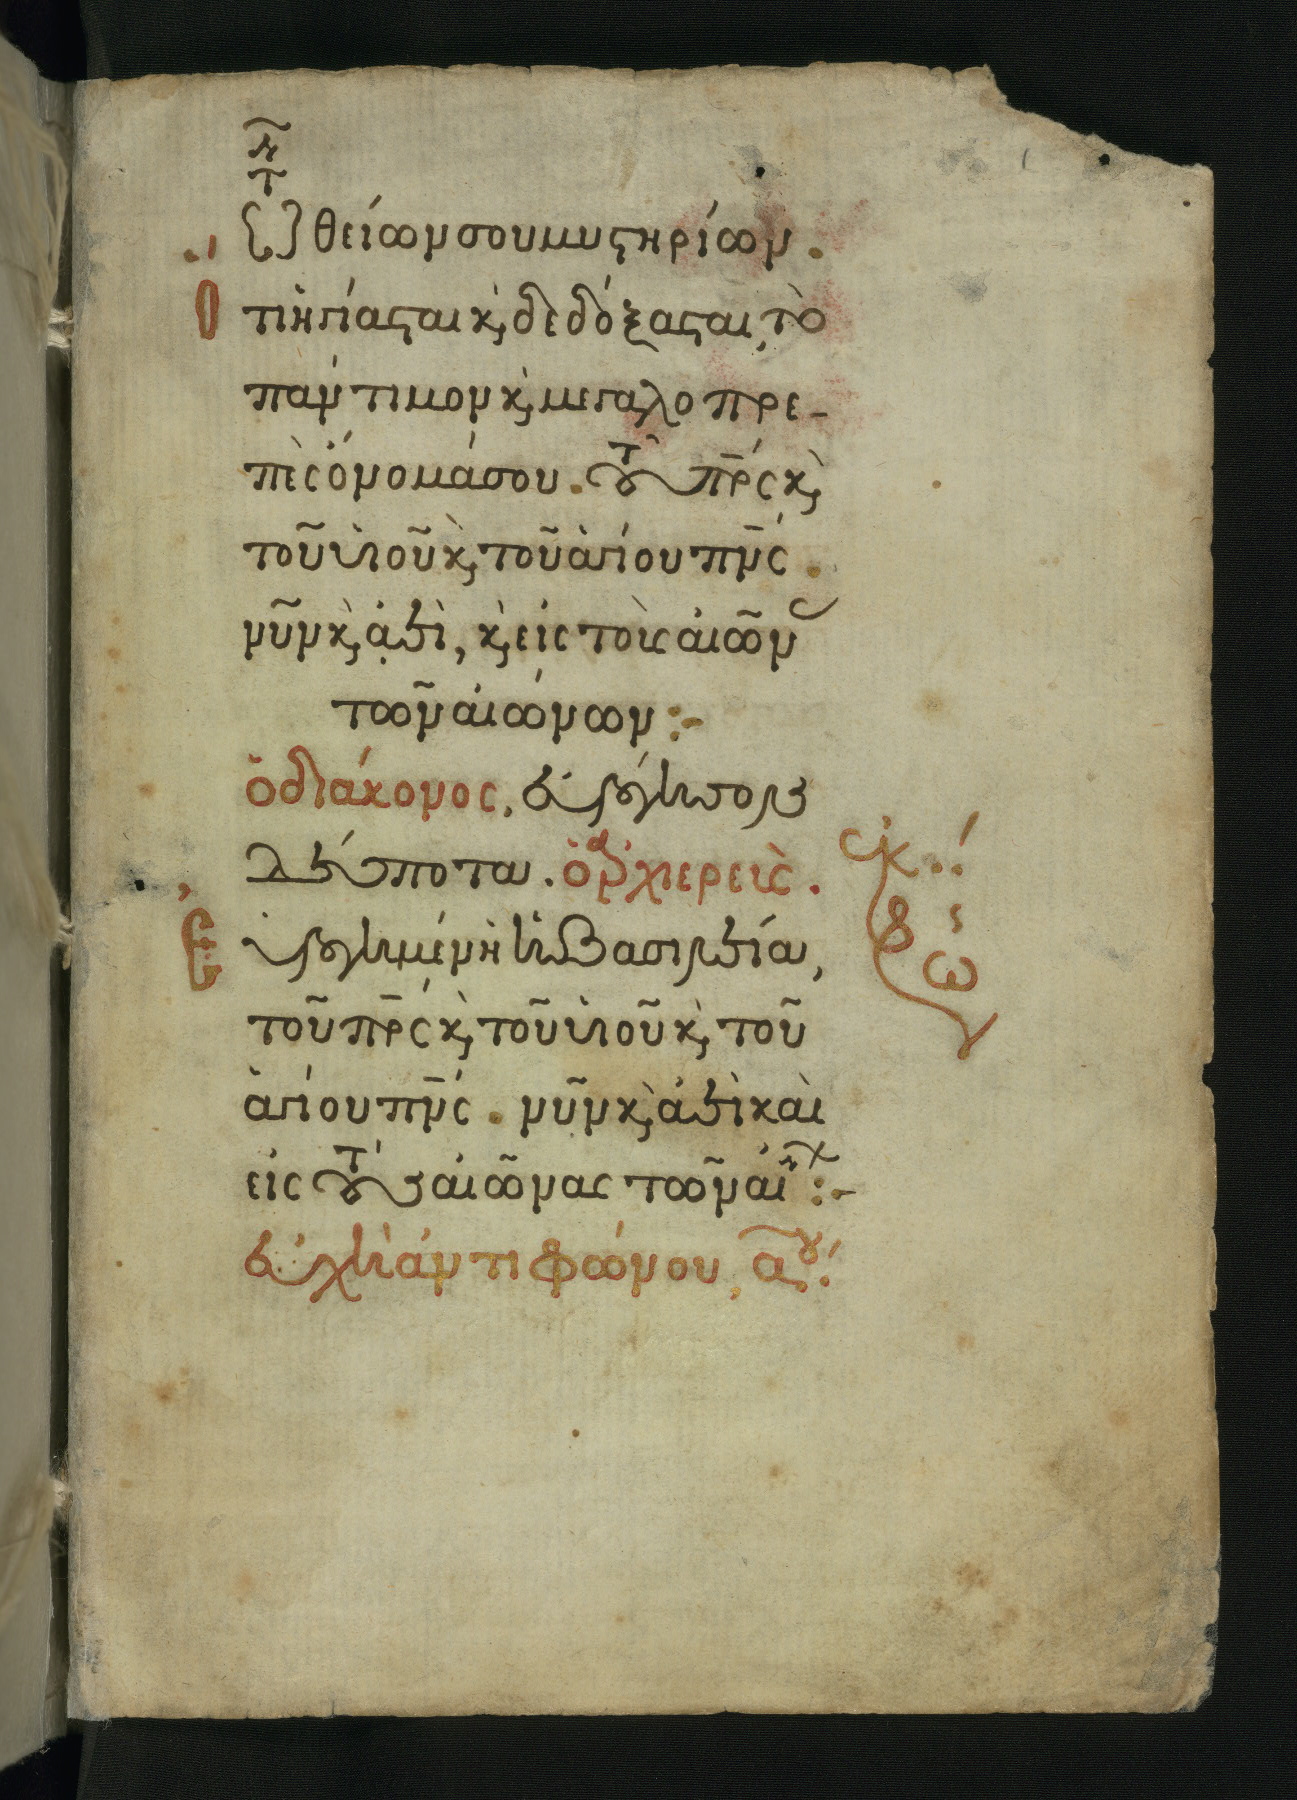 τῶν
θείων σου μυστηρίων.
Ὅτι ἡγίασται κ, δεδόξασται, τὸ
πάντιμον κ, μεγαλοπρε-
πὲς ὄνομά σου. τοῦ πρς κ,
τοῦ υἱοῦ κ, τοῦ ἁγίου πνς.
νῦν κ, ἀεὶ, κ, εἰς τοὺς αἰῶν
τῶν αἰώνων:-
ὁ διάκονος, εὐλόγησον
δέσποτα. ὁ ἀρχιερεὺς.
Εὐλογημένη ἡ βασιλεία,
τοῦ πρς κ, τοῦ υἱοῦ κ, τοῦ
ἁγίου πνς. νῦν κ, ἀεὶ καὶ
εἰς τοὺς αἰῶνας τῶν αἰ:-
εὐχὴ ἀντιφώνου, αου